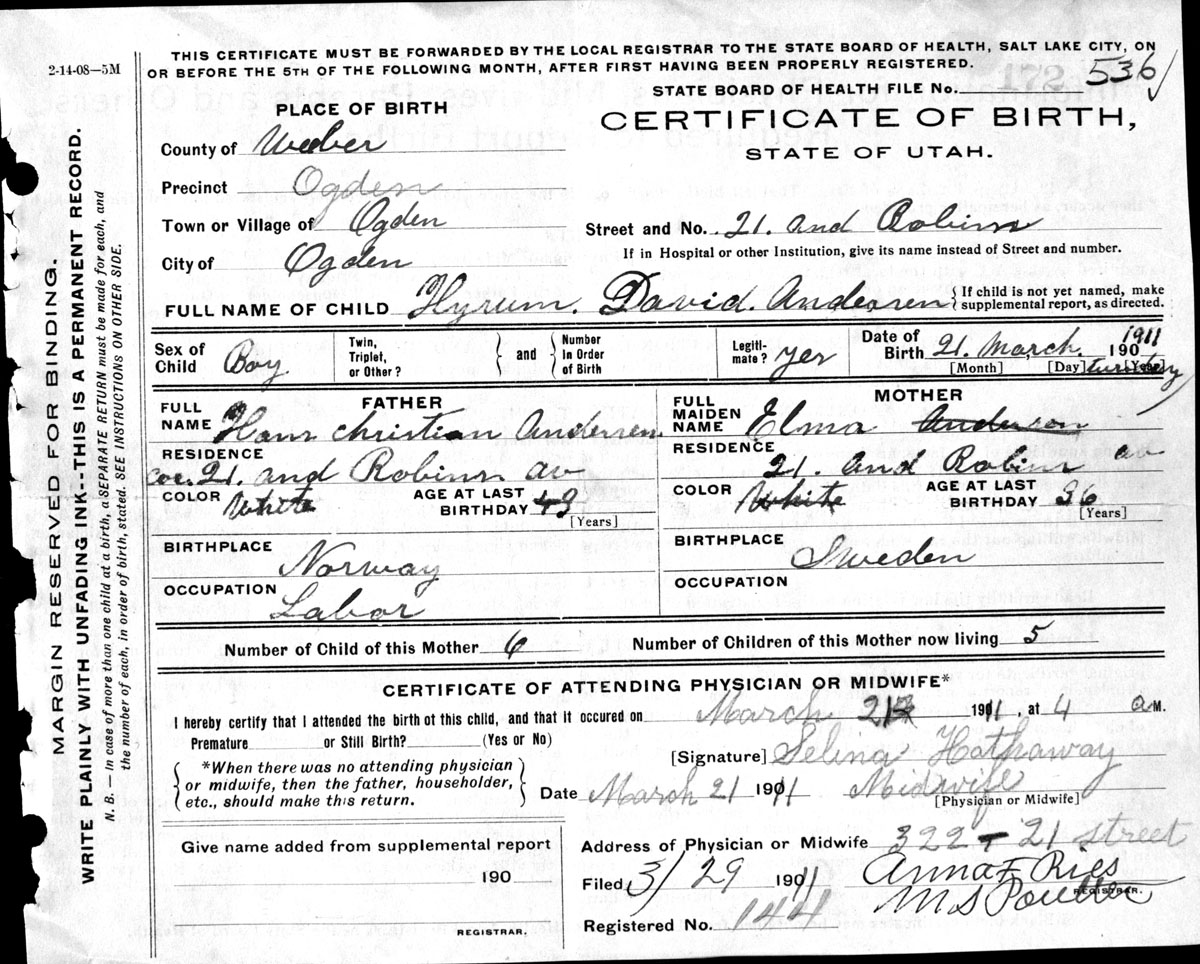 2-14-08—5M
THIS CERTIFICATE MUST BE FORWARDED BY THE LOCAL REGISTRAR TO THE STATE BOARD OF HEALTH, SALT LAKE CITY, ON
OR BEFORE THE 5TH OF THE FOLLOWING MONTH, AFTER FIRST HAVING BEEN PROPERLY REGISTERED.
STATE BOARD OF HEALTH FILE No. 536
PLACE OF BIRTH
CERTIFICATE OF BIRTH,
STATE OF UTAH.
County of Weber
Precinct Ogden
Town or Village of Ogden
Street and No. 21. and Robins
If in Hospital or other Institution, give its name instead of Street and number.
City of Ogden
FULL NAME OF CHILD Hyrum. David. Andersen { If child is not yet named, make supplemental report, as directed.
Sex of Child Boy. Twin, Triplet, or Other? } and { Number in Order of Birth Legiti- mate? yes Date of Birth 21. March. 190 1911
[Month] [Day] [Year]
FATHER
FULL NAME Hans Christian Andersen.
RESIDENCE
cor. 21. and Robins av
COLOR White AGE AT LAST BIRTHDAY 49
[Years]
BIRTHPLACE Norway
OCCUPATION Labor
MOTHER
FULL MAIDEN NAME Elma Anderson
RESIDENCE
21. and Robins av
COLOR White AGE AT LAST BIRTHDAY 36
[Years]
BIRTHPLACE Sweden
OCCUPATION
Number of Child of this Mother 6 Number of Children of this Mother now living 5
CERTIFICATE OF ATTENDING PHYSICIAN OR MIDWIFE*
I hereby certify that I attended the birth of this child, and that it occured on March 21 1911, at 4 a M.
Premature or Still Birth? (Yes or No)
[Signature] Selina Hathaway
{ *When there was no attending physician or midwife, then the father, householder, etc., should make this return. }
Date March 21 1911 Midwife
[Physician or Midwife]
Give name added from supplemental report
190
REGISTRAR.
Address of Physician or Midwife 322 - 21 street
Filed 3/29 1911 Anna F. Ries
M S Poulter
REGISTRAR.
Registered No. 144
MARGIN RESERVED FOR BINDING.
WRITE PLAINLY WITH UNFADING INK--THIS IS A PERMANENT RECORD.
N. B. — In case of more than one child at birth, a SEPARATE RETURN must be made for each, and
the number of each, in order of birth, stated. SEE INSTRUCTIONS ON OTHER SIDE.